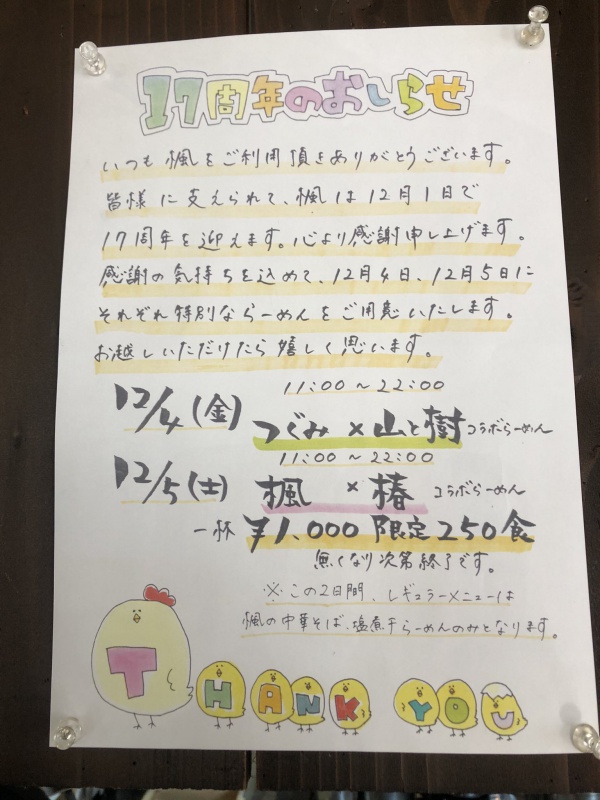 17周年のおしらせ
いつも楓をご利用頂きありがとうございます。
皆様に支えられて、楓は12月1日で
17周年を迎えます。心より感謝申し上げます。
感謝の気持ちを込めて、12月4日、12月5日に
それぞれ特別ならーめんをご用意いたします。
お越しいただけたら嬉しく思います。
11:00～22:00
12/4(金) つぐみ×山と樹 コラボらーめん
11:00～22:00
12/5(土) 楓×椿 コラボらーめん
一杯 ¥1,000 限定250食
無くなり次第終了です。
※この2日間、レギュラーメニューは
楓の中華そば、塩煮干らーめんのみとなります。
THANK YOU